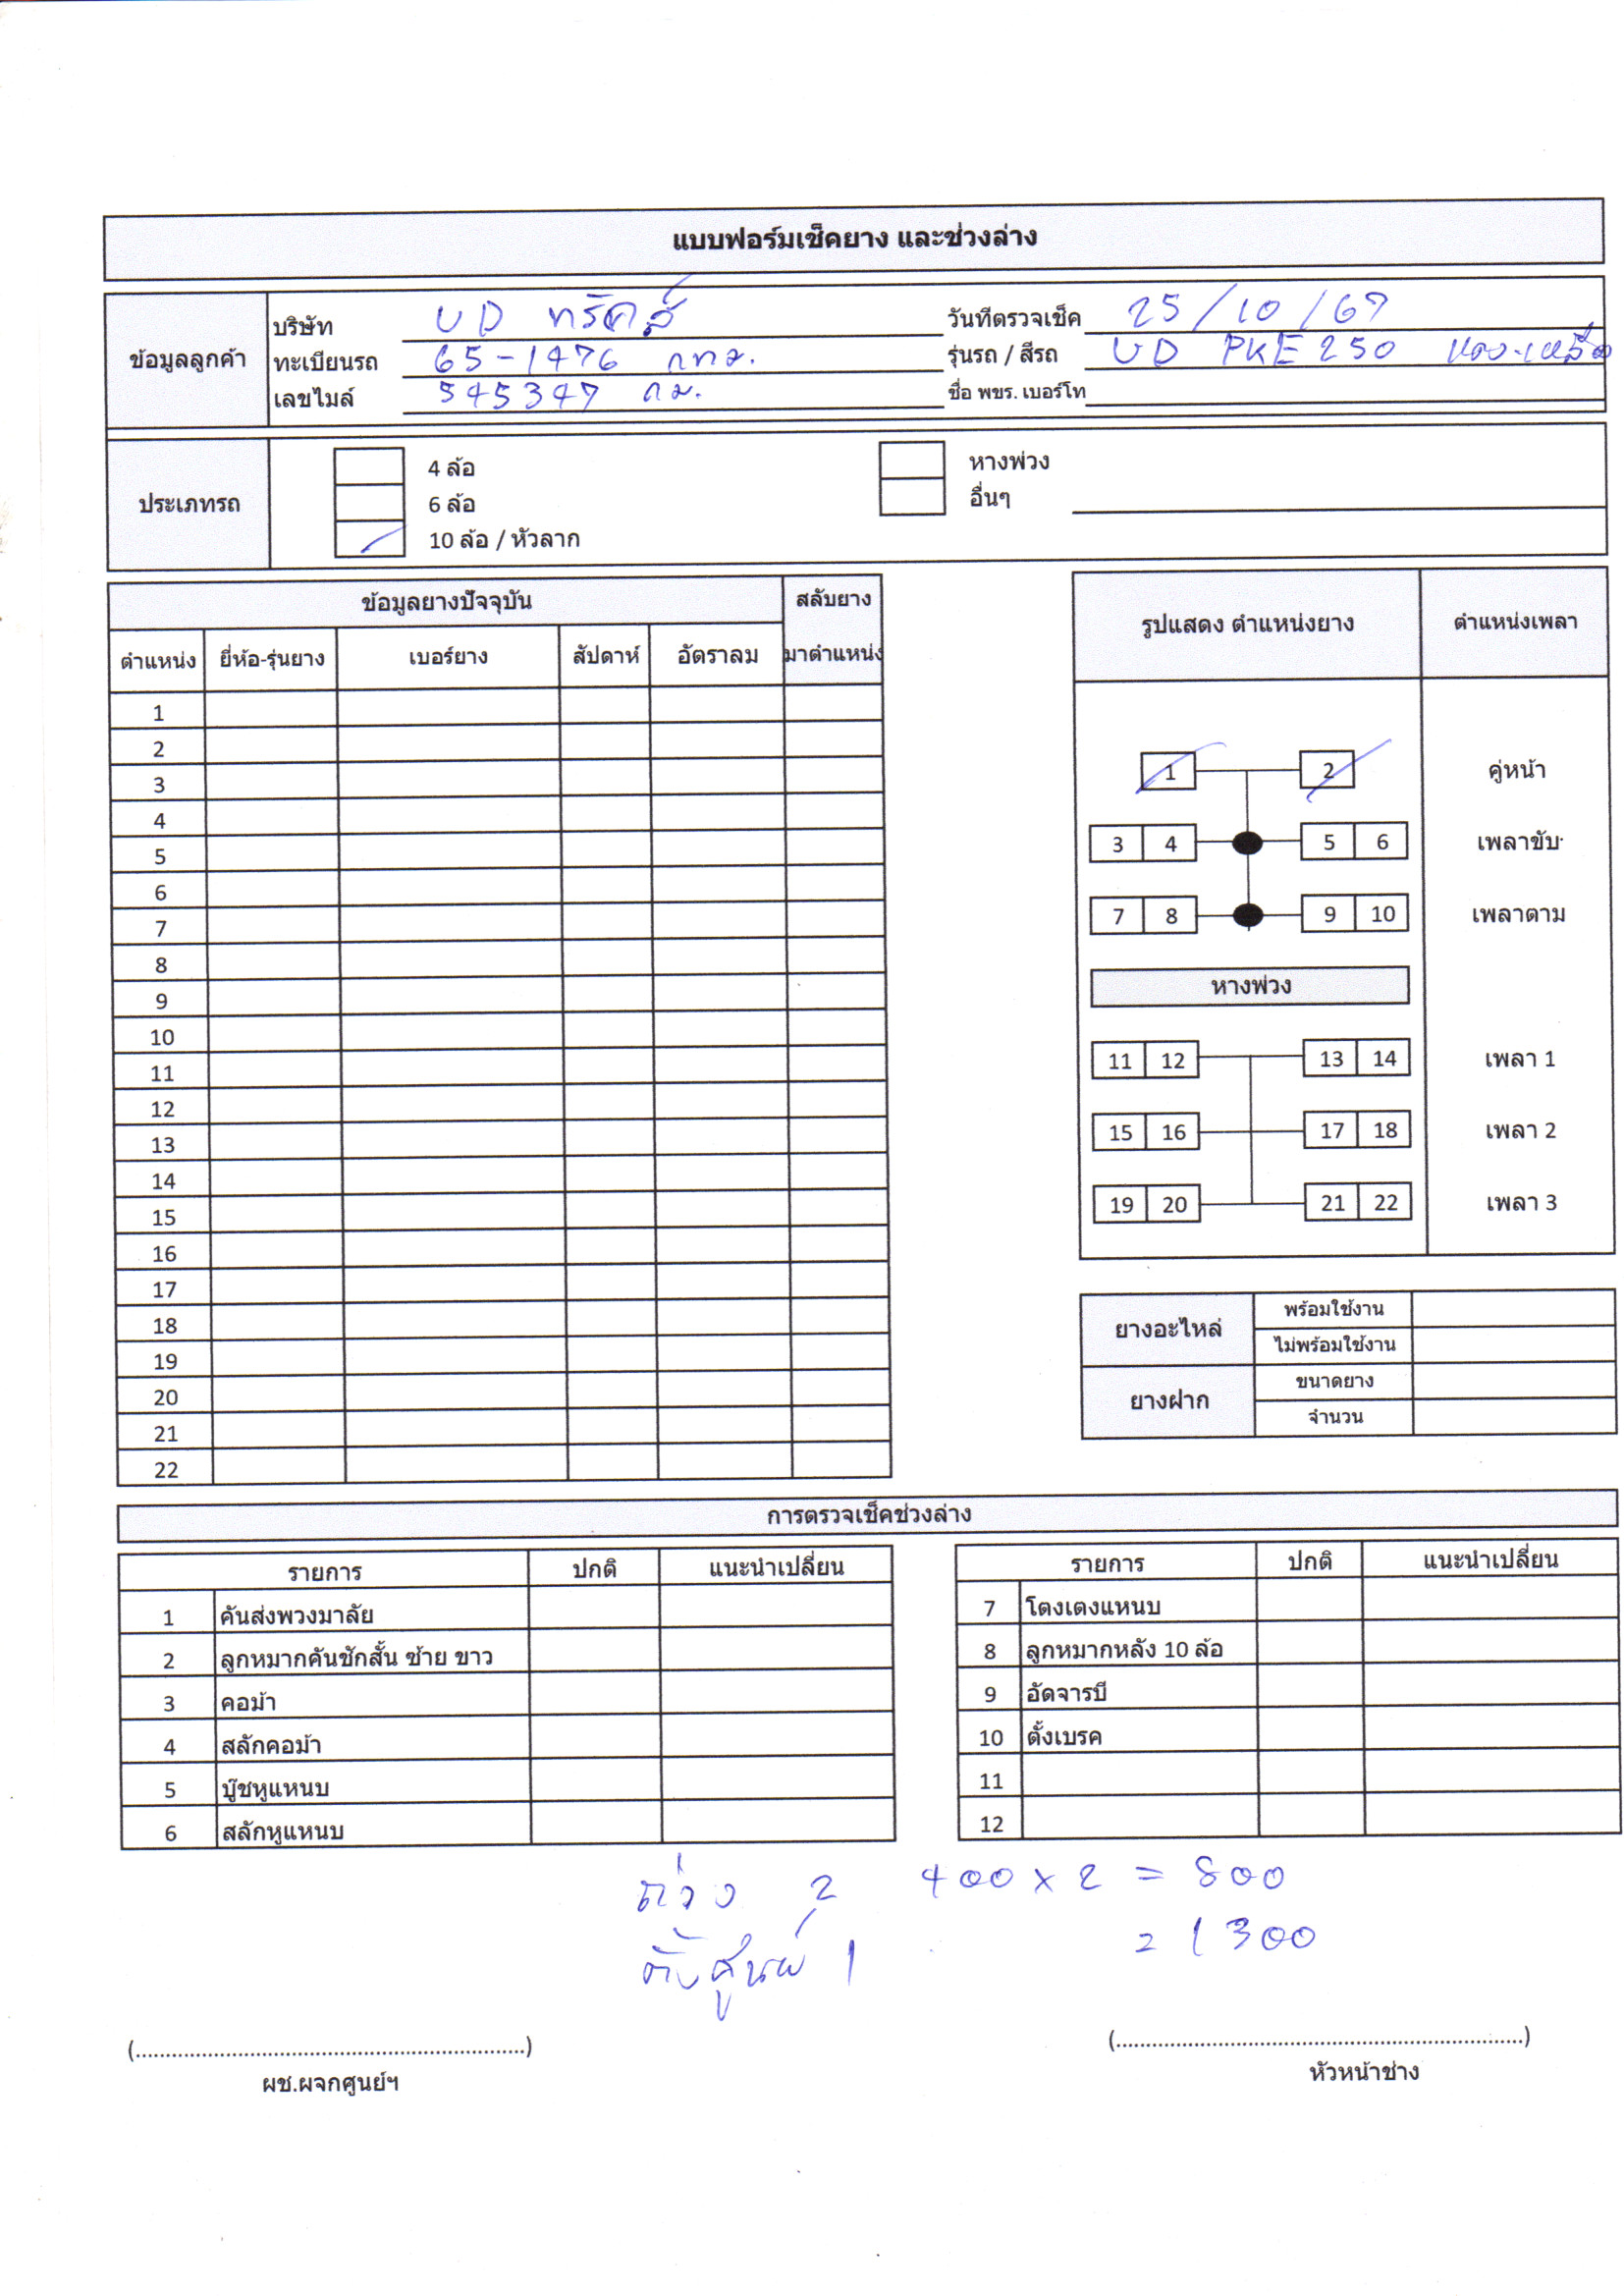 แบบฟอร์มเช็คยาง และช่วงล่าง
ข้อมูลลูกค้า
บริษัท UD ทรัคส์ วันที่ตรวจเช็ค 25/10/67
ทะเบียนรถ 65-1476 กทม. รุ่นรถ / สีรถ UD PKE 250
เลขไมล์ 545347 กม. ชื่อ พขร. เบอร์โท
ประเภทรถ
4 ล้อ หางพ่วง
6 ล้อ อื่นๆ
10 ล้อ / หัวลาก
ข้อมูลยางปัจจุบัน สลับยาง
ตำแหน่ง ยี่ห้อ-รุ่นยาง เบอร์ยาง สัปดาห์ อัตราลม มาตำแหน่ง
1
2
3
4
5
6
7
8
9
10
11
12
13
14
15
16
17
18
19
20
21
22
รูปแสดง ตำแหน่งยาง ตำแหน่งเพลา
1 2 คู่หน้า
3 4 5 6 เพลาขับ
7 8 9 10 เพลาตาม
หางพ่วง
11 12 13 14 เพลา 1
15 16 17 18 เพลา 2
19 20 21 22 เพลา 3
ยางอะไหล่ พร้อมใช้งาน
ไม่พร้อมใช้งาน
ยางฝาก ขนาดยาง
จำนวน
การตรวจเช็คช่วงล่าง
รายการ ปกติ แนะนำเปลี่ยน
1 คันส่งพวงมาลัย
2 ลูกหมากคันชักสั้น ซ้าย ขาว
3 คอม้า
4 สลักคอม้า
5 บู๊ชหูแหนบ
6 สลักหูแหนบ
รายการ ปกติ แนะนำเปลี่ยน
7 โตงเตงแหนบ
8 ลูกหมากหลัง 10 ล้อ
9 อัดจารบี
10 ตั้งเบรค
11
12
ถ่วง 2 400 x 2 = 800
ตั้งศูนย์ 1 = 1300
(.................................................................)
ผช.ผจกศูนย์ฯ
(....................................................................)
หัวหน้าช่าง